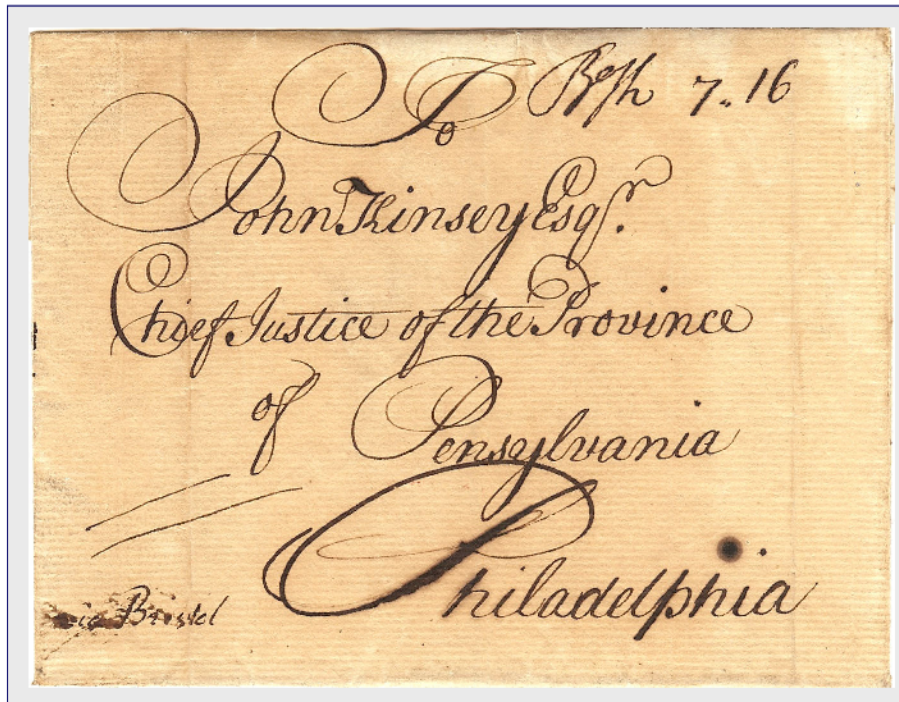 To 7.16
John Kinsey Esqr.
Chief Justice of the Province
of Pensylvania
Philadelphia
via Bristol